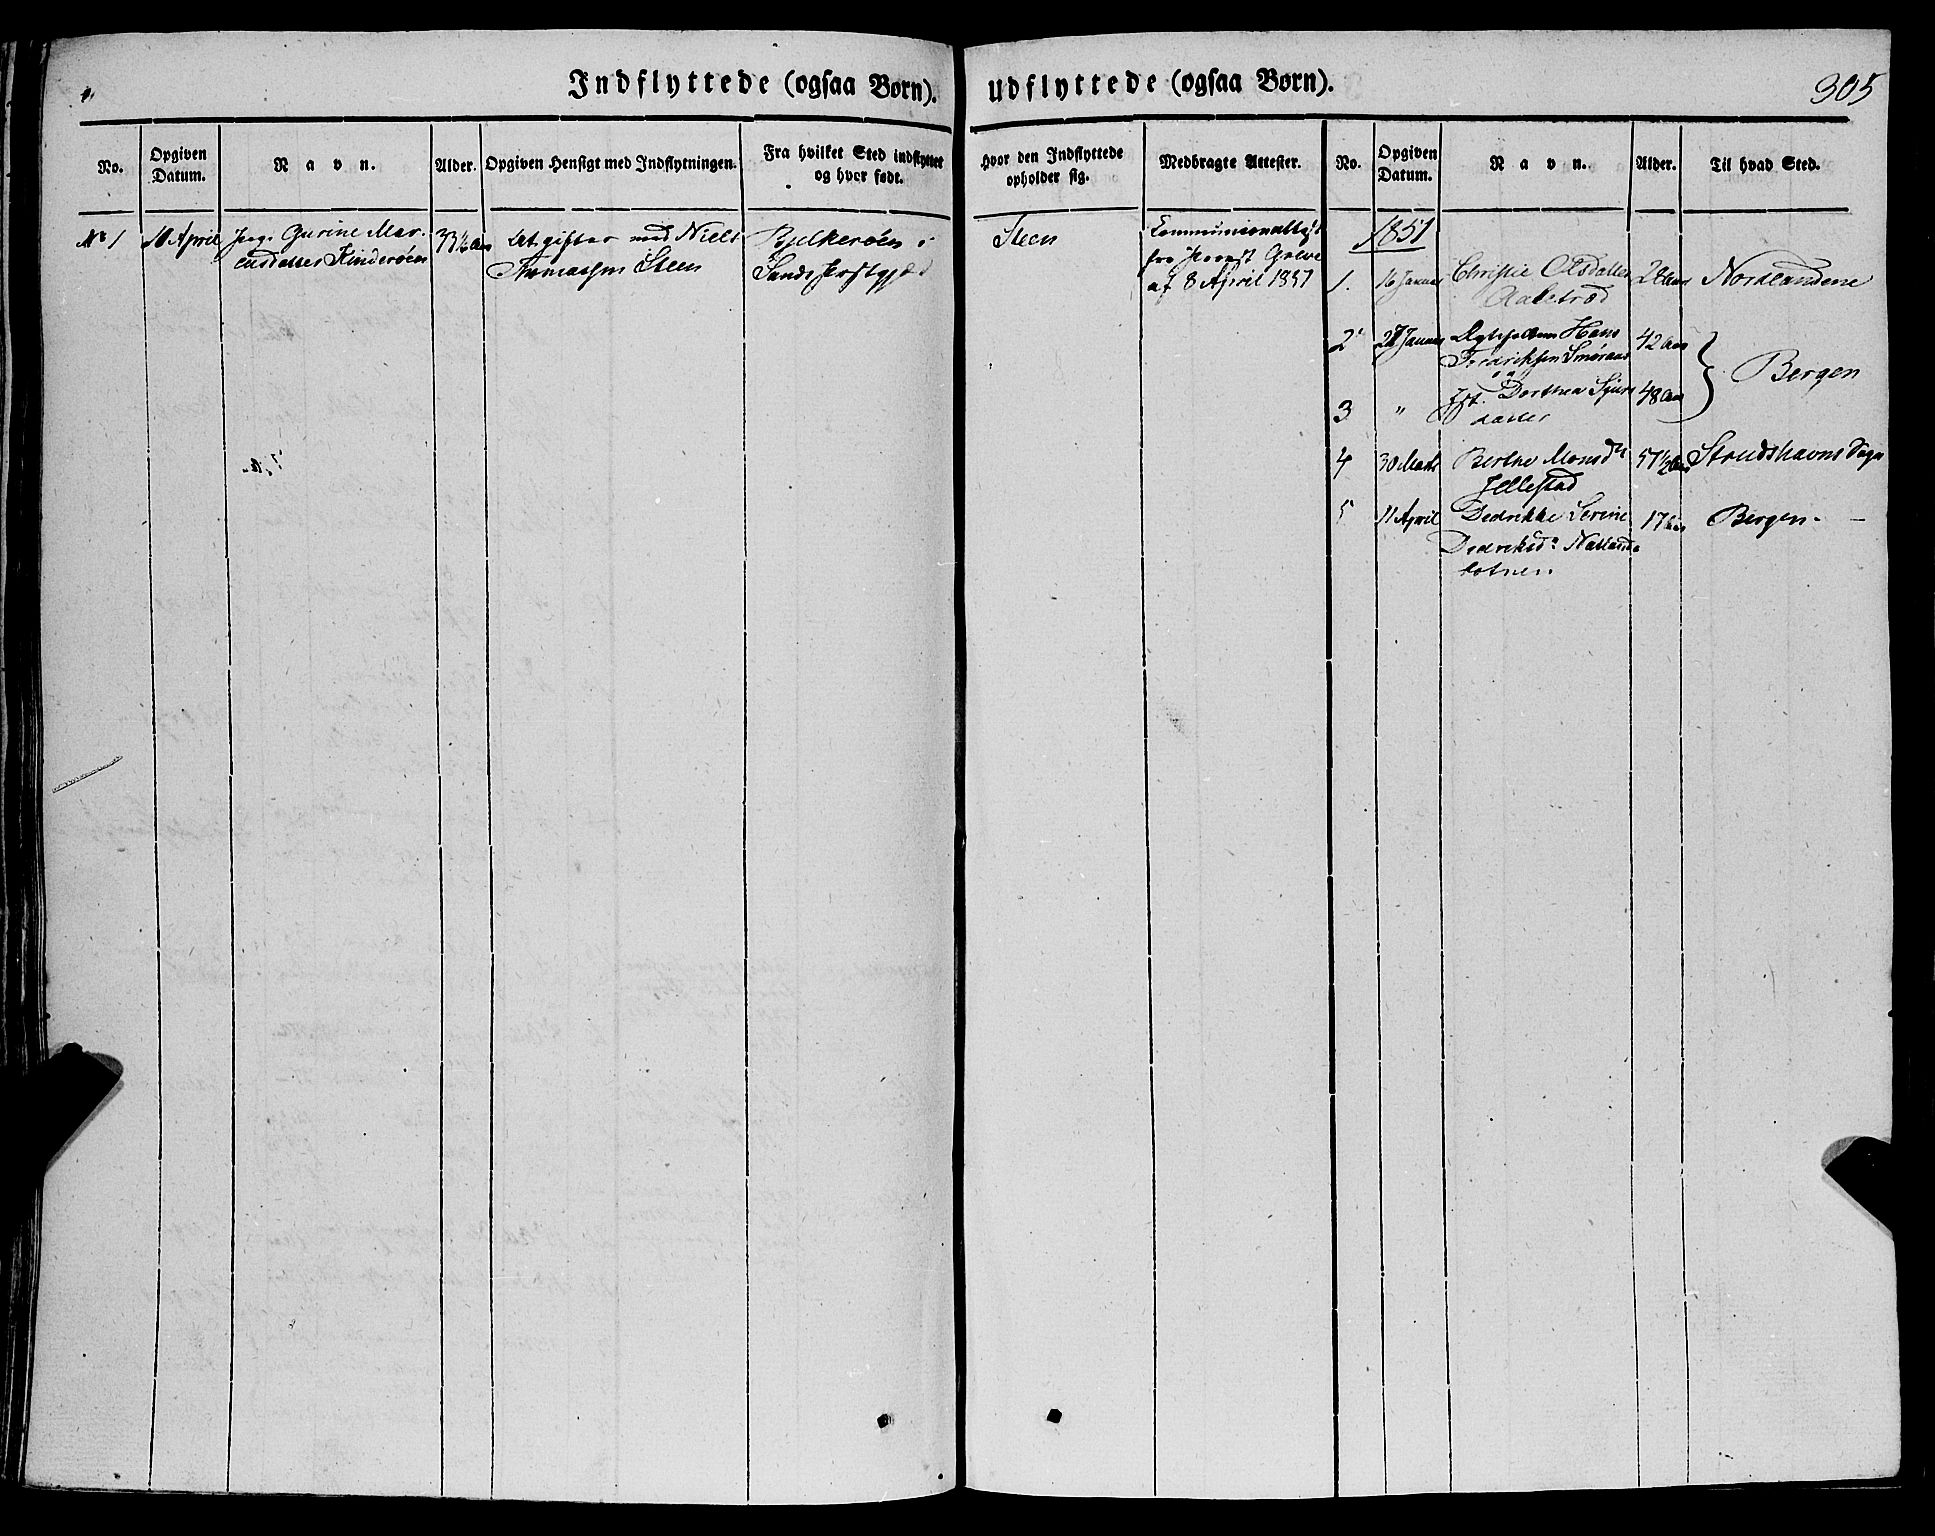 Indflyttede (ogsaa Børn).
No.
Opgiven
Datum.
Navn.
Alder.
Opgiven Hensigt med Indflytningen.
Fra hvilket Sted indflyttet
og hvor født.
No 1
10 April
Gurine Mar-
cusdatter Kinderøen
33½ Aar
At giftes med Niels
Thomassen Steen
Bjelkerøen i
Sunds Præstgjæld
udflyttede (ogsaa Børn).
305
Hvor den Indflyttede
opholder sig.
Medbragte Attester.
No.
Opgiven
Datum.
Navn.
Alder.
Til hvad Sted.
Steen
Communionattest
fra Provst Greve
af 8 April 1851
1851
1.
16 Januar
Christie Olsdatter
Aalstrød
28 Aar
Nordlandene
2
27 Januar
Hans
Fredriksen Smøraas
42 Aar
3
"
Dorthea Sjurs
datter
48 Aar
Bergen
4
30 Marts
Berthe Monsdr
Jellestad
57½ Aar
Strudshavns Sogn
5
11 April
Dedrikke Serine
Dedriksdr Natlands
17 Aar
Bergen